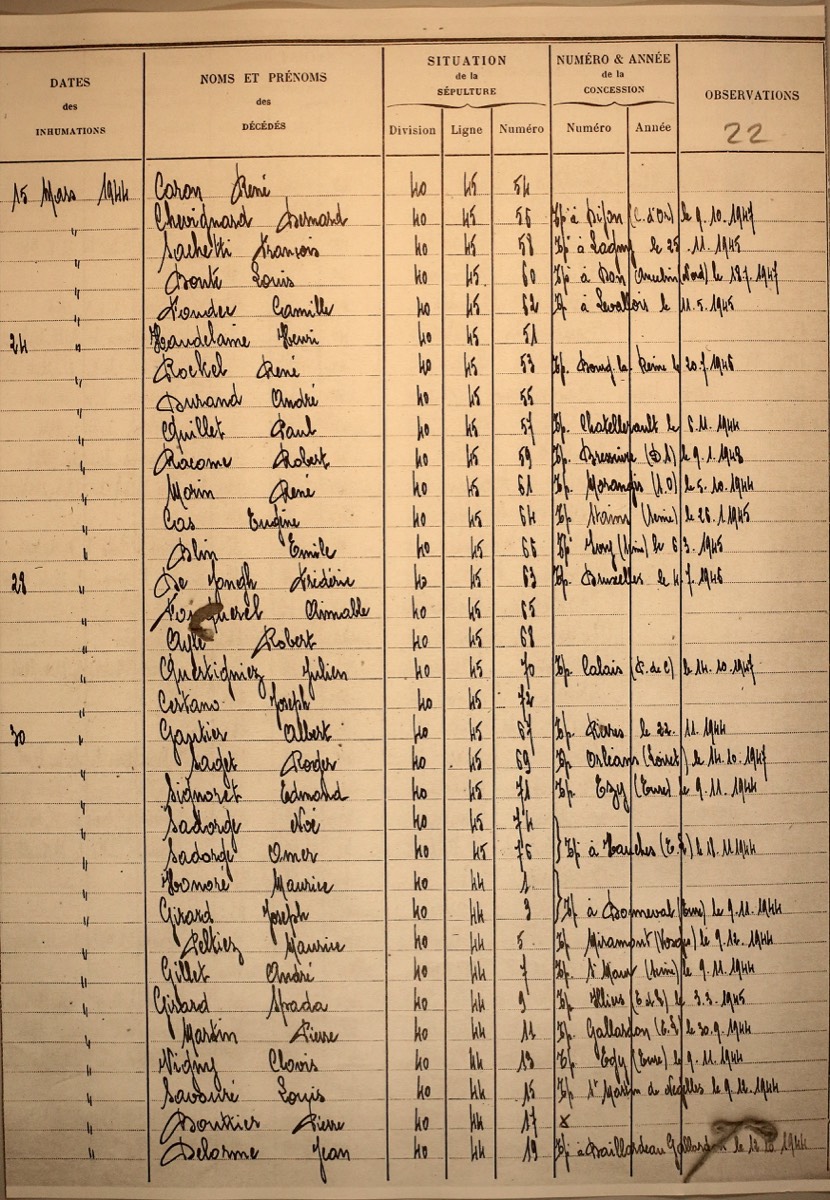 DATES des INHUMATIONS NOMS ET PRÉNOMS des DÉCÉDÉS SITUATION de la SÉPULTURE NUMÉRO & ANNÉE de la CONCESSION OBSERVATIONS
Division Ligne Numéro Numéro Année 22
15 Mars 1944 Caron René 40 45 54
" Chevignard Bernard 40 45 56 Tp à Dijon (C. d'Or) le 9.10.1947
" Sachetti François 40 45 58 Tp à Lagny le 25.11.1945
" Bonte Louis 40 45 60 Tp à Don (Nord) le 18.7.1947
" Camille 40 45 62 Tp à Levallois le 11.5.1945
24 " Haudelaine Henri 40 45 51
" Rockel René 40 45 53 Tp. Bourg la Reine le 20.7.1946
" Durand André 40 45 55
" Guillet Paul 40 45 57 Tp. Chatellerault le 6.11.1944
" Racome Robert 40 45 59 Tp. Bressuire (D.S) le 9.1.1948
" Morin René 40 45 61 Tp. Morangis (S.O) le 5.10.1944
" Cas Eugène 40 45 64 Tp. Stains (Seine) le 26.1.1945
" Blin Emile 40 45 66 Tp. Ivry (Seine) le 6.3.1945
28 " De Jongh Frédéric 40 45 63 Tp. Bruxelles le 4.7.1946
" Aimable 40 45 65
" Aylé Robert 40 45 68
" Questigniez Julien 40 45 70 Tp. Calais (P. de C) le 14.10.1947
" Cestano Joseph 40 45 72
30 " Gautier Albert 40 45 67 Tp. Pierres le 22.11.1944
" Sadet Roger 40 45 69 Tp. Orléans (Loiret) le 14.10.1947
" Signoret Edmond 40 45 71 Tp. Ezy (Eure) le 9.11.1944
" Sadorge Noé 40 45 74
" Sadorge Omer 40 45 76 } Tp à Hanches (E.L) le 18.11.1944
" Honoré Maurice 40 44 1
" Girard Joseph 40 44 3 } Tp à Bonneval (Eure) le 9.11.1944
" Pelliez Maurice 40 44 5 Tp. Miramont (Vosges) le 9.12.1944
" Gillet André 40 44 7 Tp. St Maur (Seine) le 9.11.1944
" Girard Spada 40 44 9 Tp. Illiers (E et L) le 3.3.1945
" Martin Pierre 40 44 11 Tp. Gallardon (E.L) le 30.9.1944
" Vigny Clovis 40 44 13 Tp. Ezy (Eure) le 9.11.1944
" Savouré Louis 40 44 15 Tp. St Martin de Nigelles le 9.12.1944
" Bouthier Pierre 40 44 17 x
" Delorme Jean 40 44 19 Tp à Bailleau Gallardon le 12.10.1944